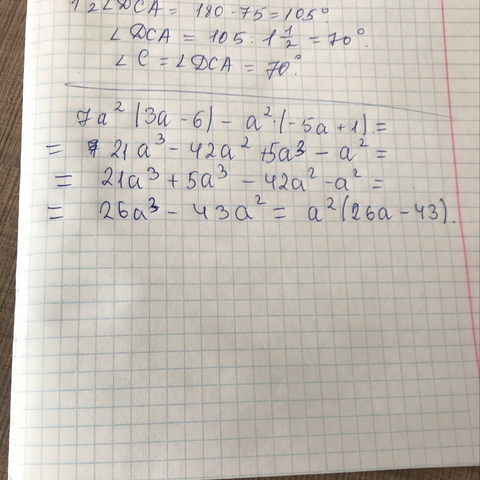 1 1/2 ∠DCA = 180 - 75 = 105°
∠DCA = 105 : 1 1/2 = 70°.
∠C = ∠DCA = 70°.
7a² (3a - 6) - a² · (-5a + 1) =
= 21a³ - 42a² + 5a³ - a² =
= 21a³ + 5a³ - 42a² - a² =
= 26a³ - 43a² = a² (26a - 43).